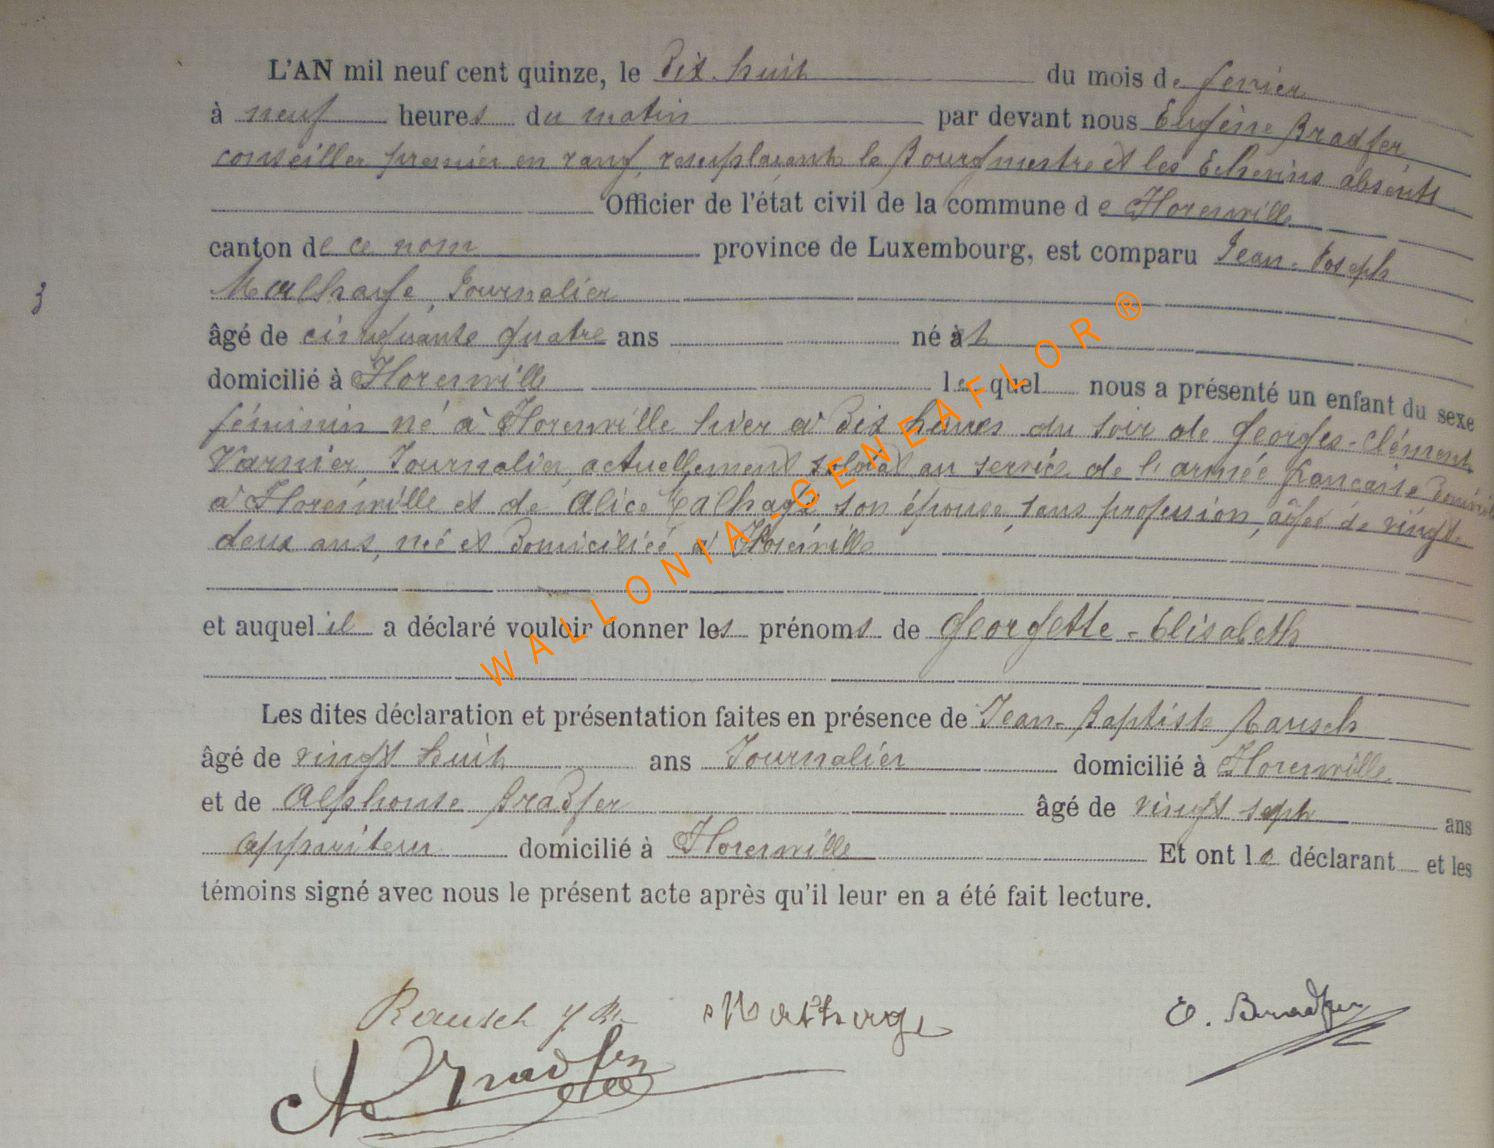 L'AN mil neuf cent quinze, le Dix-huit du mois de fevrier
à neuf heures du matin par devant nous Eugène Bradfer,
conseiller premier en rang, remplaçant le Bourgmestre et les Echevins absents
Officier de l'état civil de la commune de Florenville
canton de ce nom province de Luxembourg, est comparu Jean-Joseph
Malhage, Journalier
3
âgé de cinquante quatre ans né à et
domicilié à Florenville lequel nous a présenté un enfant du sexe
féminin né à Florenville hier à Dix heures du soir de Georges-Clément
Varnier, Journalier, actuellement soldat au service de l'armée française Domicilié
à Florenville et de Alice Malhage son épouse, sans profession, âgée de vingt
deux ans, né et Domiciliée à Florenville
et auquel il a déclaré vouloir donner les prénoms de Georgette-Elisabeth
Les dites déclaration et présentation faites en présence de Jean-Baptiste Rausch
âgé de vingt huit ans Journalier domicilié à Florenville
et de Alphonse Bradfer âgé de vingt sept ans
appariteur domicilié à Florenville Et ont le déclarant et les
témoins signé avec nous le présent acte après qu'il leur en a été fait lecture.
Rausch J B Malhage E. Bradfer
A Bradfer
WALLONIA-GENEAFLOR ®